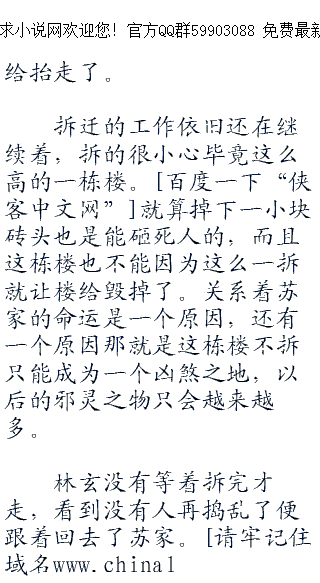 求小说网欢迎您! 官方QQ群59903088 免费最新
给抬走了。
拆迁的工作依旧还在继
续着，拆的很小心毕竟这么
高的一栋楼。[百度一下“侠
客中文网”]就算掉下一小块
砖头也是能砸死人的，而且
这栋楼也不能因为这么一拆
就让楼给毁掉了。关系着苏
家的命运是一个原因，还有
一个原因那就是这栋楼不拆
只能成为一个凶煞之地，以
后的邪灵之物只会越来越
多。
林玄没有等着拆完才
走，看到没有人再捣乱了便
跟着回去了苏家。[请牢记住
域名www.china1